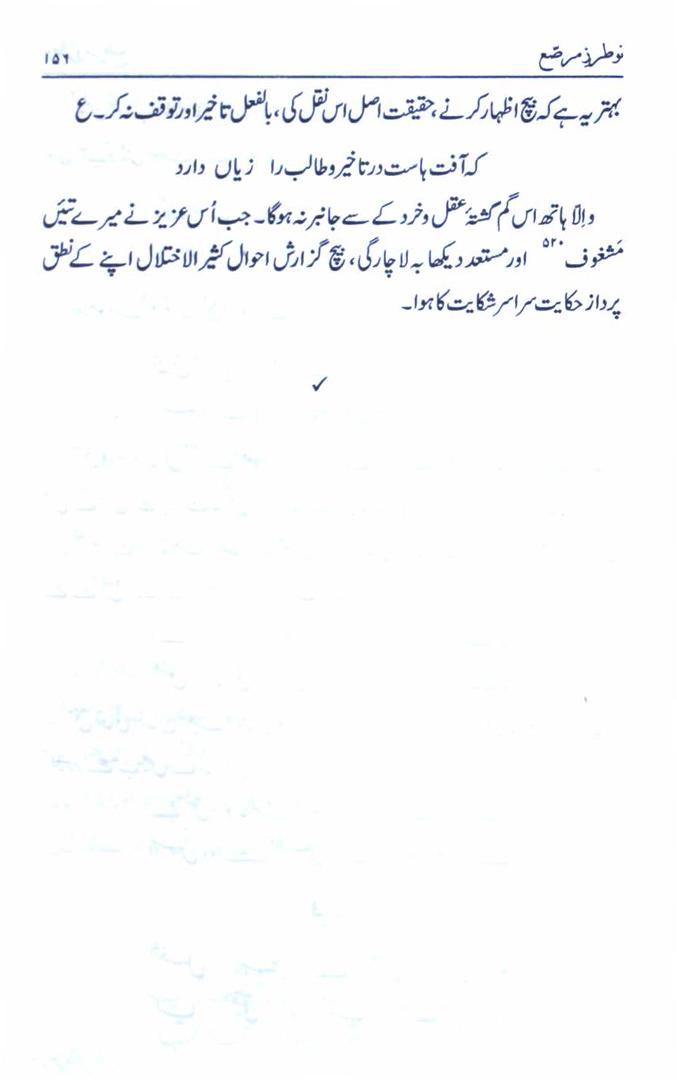 نو طرزِ مرصّع
۱۵۶
بہتر یہ ہے کہ بیچ اظہار کرنے، حقیقت اصل اس نقل کی، بالفعل تاخیر اور توقف نہ کر۔ ع
کہ آفت ہاست در تاخیر و طالب را زیاں دارد
واِلّا ہاتھ اس گم گشتۂ عقل و خرد کے سے جانبر نہ ہوگا۔ جب اُس عزیز نے میرے تئیں
مَشغوف ۵۲۰ اور مستعد دیکھا بہ لاچارگی، بیچ گزارش احوال کثیر الاختلال اپنے کے نطق
پرداز حکایت سراسر شکایت کا ہوا۔
✓